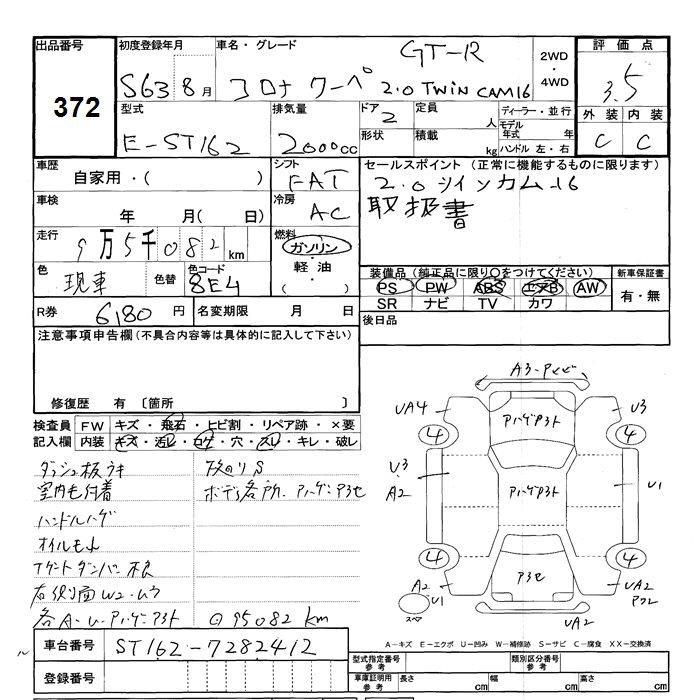 出品番号 初度登録年月 車名・グレード GT-R 2WD・4WD 評価点
372 S63 8月 コロナ クーペ 2.0 TWIN CAM16 3.5
型式 排気量 ドア 定員 ディーラー・並行 外装 内装
E-ST162 2000cc 2 人 モデル年式 年 C C
形状 積載 kg ハンドル 左・右
車歴 シフト セールスポイント (正常に機能するものに限ります)
自家用・( ) FAT 2.0 ツインカム-16
車検 冷房 取扱書
年 月( 日) AC
走行 燃料
9万5千082km ガソリン・軽油・( )
色 色替 色コード 装備品 (純正品に限り○をつけてください) 新車保証書
現車 8E4 PS PW ABS エアB AW 有・無
SR ナビ TV カワ
R券 6,180円 名変期限 月 日 後日品
注意事項申告欄 (不具合内容等は具体的に記入して下さい)
修復歴 有 〔箇所
検査員 FW キズ・飛石・ヒビ割・リペア跡・×要
記入欄 内装 キズ・汚レ・コゲ・穴・スレ・キレ・破レ
ダッシュ板ウキ
室内毛付着 ボデー各所、
ハンドルハゲ
オイルモレ
ダンパー不良
右側面W2・
各A・U・ ⊙95082 km
車台番号 ST162-7282412
登録番号
A3
UA4 U3
4 4
U3 A2 U1
4 4
A2 U1 UA2
スペア UA2
A-キズ E-エクボ U-凹み W-補修跡 S-サビ C-腐食 XX-交換済
型式指定番号 参考 類別区分番号 参考
車庫証明用 参考 長さ cm 幅 cm 高さ cm